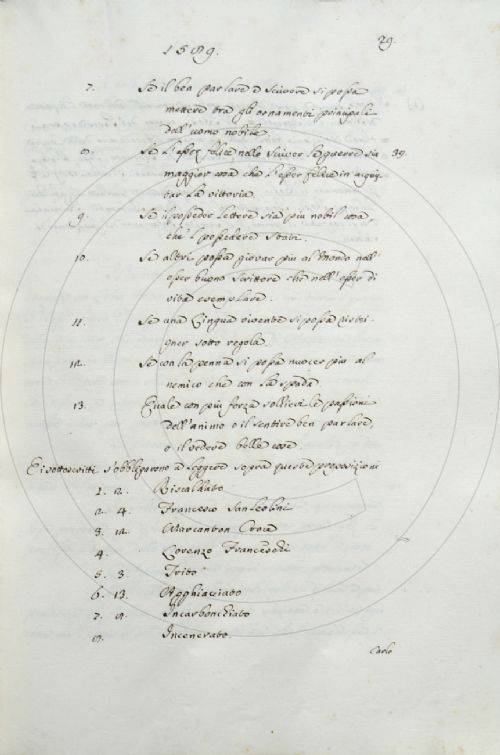 29.
1589.
7. Se il ben parlare o scivere si possa
mettere tra gli ornamenti principali
dell'uomo nobile.
8. Se l'esser felice nello scriver le guerre sia 39
maggior cosa che l'esser felice in acqui
star la vittoria.
9. Se il posseder lettere sia più nobil cosa,
che 'l possedere stati.
10. Se altri possa giovar più al mondo nell'
esser buono scrittore che nell'esser di
vita esemplare.
11. Se una Lingua vivente si possa ristri
gner sotto regola.
12. Se con la penna si possa nuocer più al
nemico che con la spada.
13. Quale con più forza sollievi le passioni
dell'animo o il sentire ben parlare,
o il vedere belle cose.
E i sottoscritti s'obbligarono a leggere sopra queste proposizioni
1. 2. Riscaldato
2. 4. Francesco Sanleolini
3. 12. Marcanton Croce
4. Lorenzo Franceschi
5. 3. Trito
6. 13. Agghiacciato
7. 8. Incarbonchiato
8. Incenerato.
Carlo